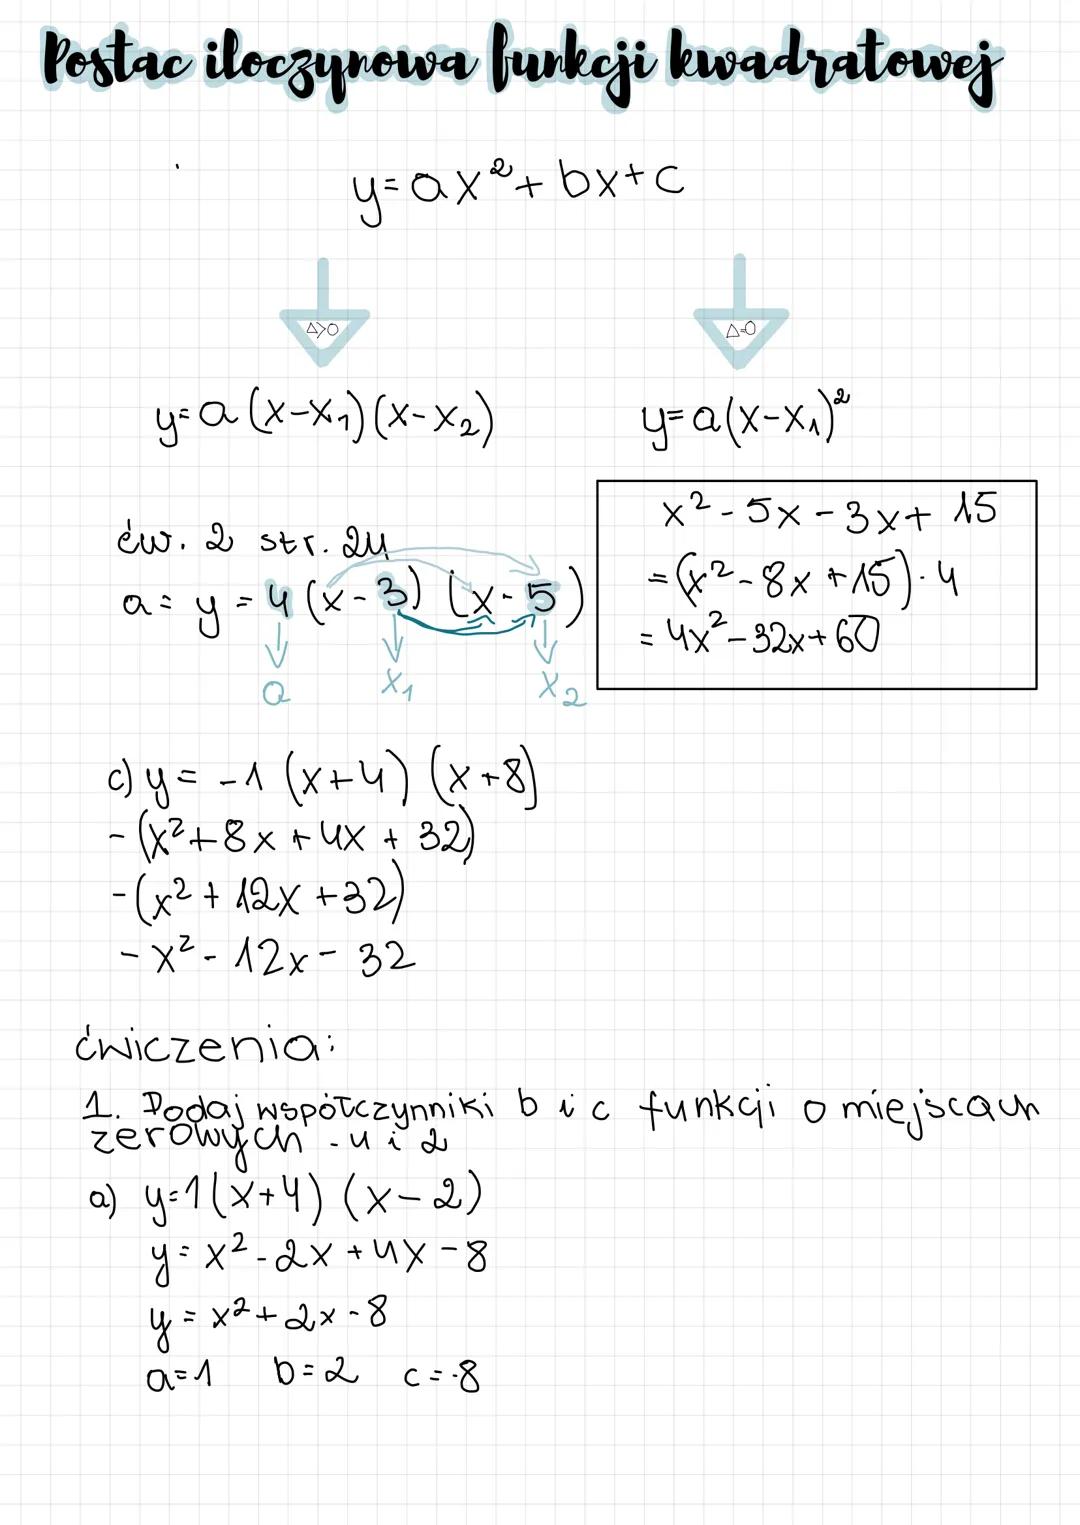 Postac iloczynowa funkcji kwadratowej
y=ax²+bx+c
Δ>0
Δ=0
y=a(x-x₁)(x-x₂)
y=a(x-x₁)²
ćw. 2 str. 24
a= y = 4 (x-3) (x-5)
a x₁ x₂
x²-5x-3x+ 15
=(x²-8x+15)·4
= 4x²-32x+60
c) y = -1 (x+4) (x+8)
-(x²+8x+4x+32)
-(x²+12x+32)
-x²-12x-32
ćwiczenia:
1. Podaj współczynniki b i c funkcji o miejscach
zerowych -4 i 2
a) y=1(x+4) (x-2)
y=x²-2x+4x-8
y = x²+2x-8
a=1 b=2 c=-8